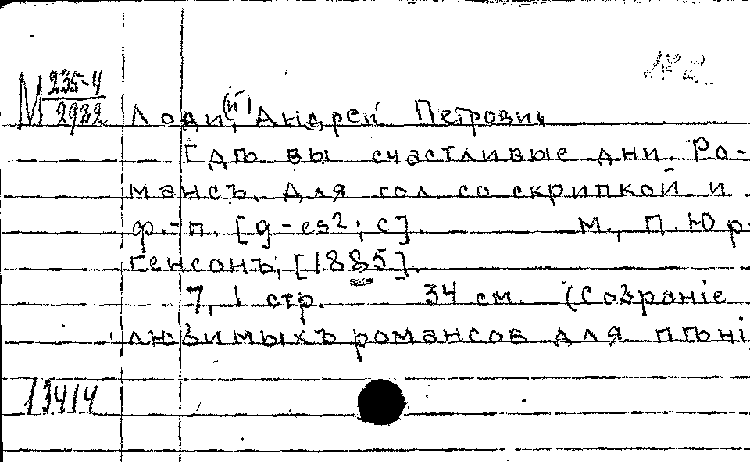 № 2
М 235-4
2932
Лоди(й), Андрей Петрович
Гдѣ вы счастливые дни. Ро-
мансъ. Для гол со скрипкой и
ф.-п. [g-es²; c]. М., П. Юр-
генсонъ, [1885].
7, 1 стр. 34 см. (Собраніе
любимыхъ романсов для пѣні
13414